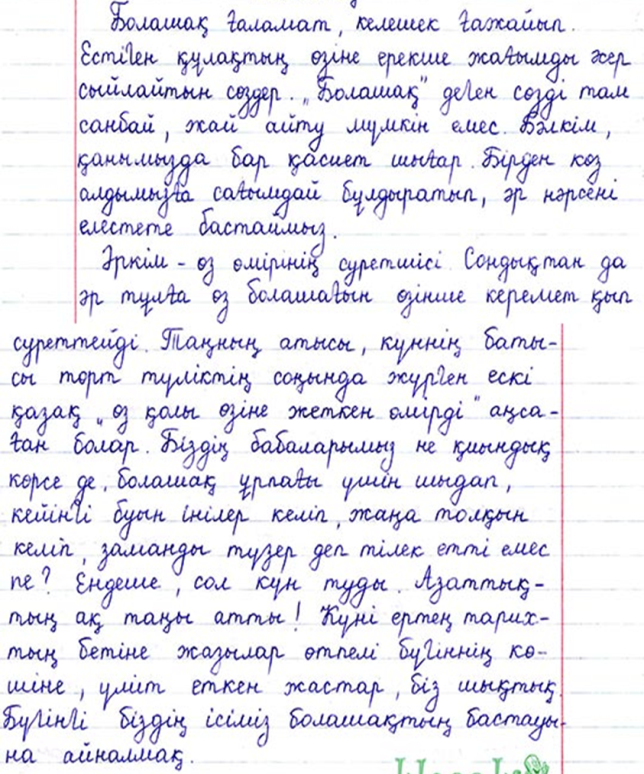 Болашақ ғаламат, келешек ғажайып.
Естіген құлақтың өзіне ерекше жағымды әсер
сыйлайтын сөздер. „Болашақ" деген сөзді там
санбай, жай айту мүмкін емес. Бәлкім,
қанымызда бар қасиет шығар. Бірден көз
алдымызға сағымдай бұлдыратып, әр нәрсені
елестете бастаймыз.
Әркім - өз өмірінің суретшісі. Сондықтан да
әр тұлға өз болашағын өзінше керемет қып
суреттейді. Таңның атысы, күннің баты-
сы төрт түліктің соңында жүрген ескі
қазақ „өз қолы өзіне жеткен өмірді" аңса-
ған болар. Біздің бабаларымыз не қиындық
көрсе де, болашақ ұрпағы үшін шыдап,
кейінгі буын інілер келіп, жаңа толқын
келіп, заманды түзер деп тілек етті емес
пе? Ендеше, сол күн туды. Азаттық-
тың ақ таңы атты! Күні ертең тарих-
тың бетіне жазылар өтпелі бүгіннің кө-
шіне, үміт еткен жастар, біз шықтық.
Бүгінгі біздің ісіміз болашақтың бастауы-
на айналмақ.